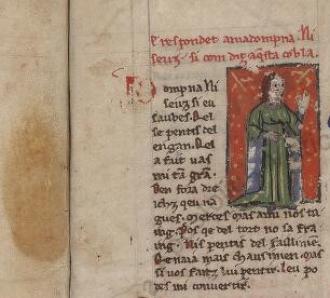 E respondet a madompna. Ni
seuz. si com diz aqesta cobla.
Dompna Ni
seuz si eu
saubes. Qel
se pentis del
engan. Qel
a fait uas
mi tā grā.
Ben fora dre
ichz qeu na
gues. Merces. Mas a mi nos ta
ing. Pos qe del tort no sa fra
ing. Nis pentis del faillimē.
Qe naia mais chausimen. Mas
si uos faitz lui pentir. Leu po
des mi conuertir.